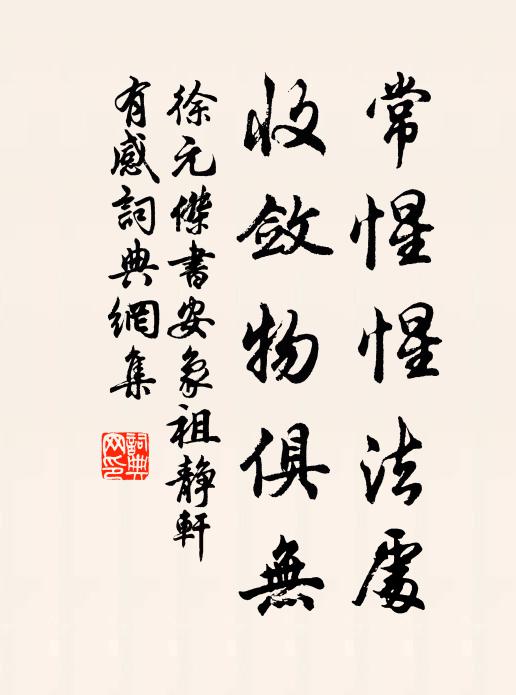 常惺惺法處
收斂物俱無
徐元傑書安象祖靜軒
有感詞典網集
詞典網印